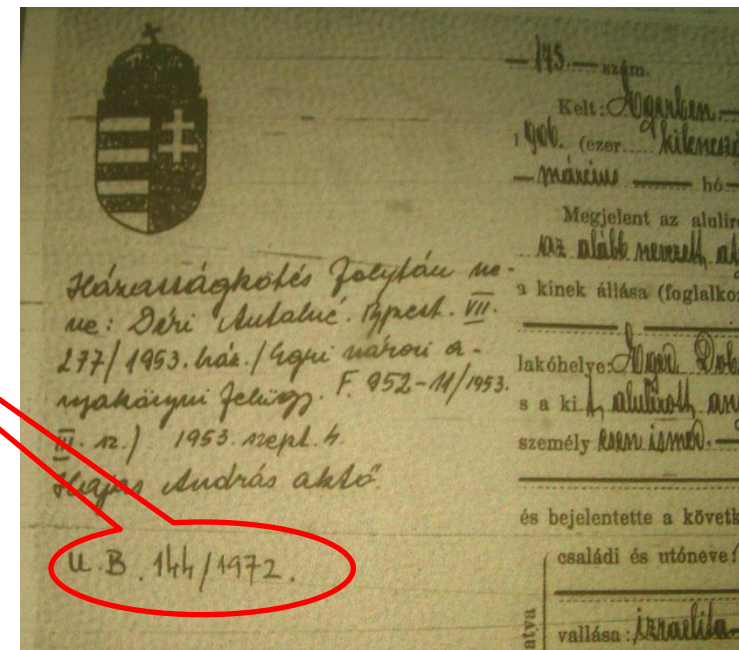 Házasságkötés folytán ne-
ve: Déri Antalné. Bpest. VII.
277/1953. hák. / Egri városi a-
nyakönyvi felügy. F. 952-11/1953.
III. sz.) 1953. szept. 4.
Hajas András aktő.
U.B. 144/1972.
— 175. — szám.
Kelt:
, 906. (ezer kilencszá
— március — hó—
Megjelent az alulíro
az alább nevezett
a kinek állása (foglalkoz
lakóhelye: Eger Dob
s a ki t, alulírott
személy esen ismer. —
és bejelentette a követk
családi és utóneve:
atya
vallása: izraelita